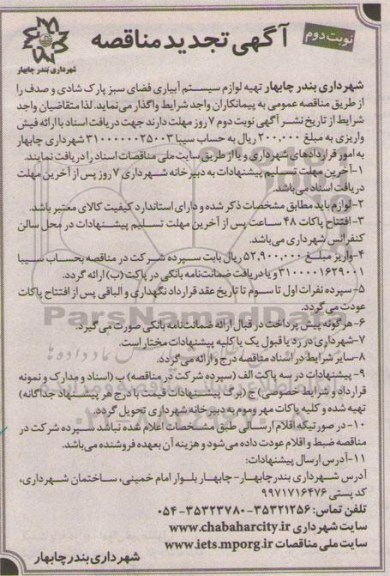 نوبت دوم
آگهی تجدید مناقصه
شهرداری بندر چابهار
شهرداری بندر چابهار تهیه لوازم سیستم آبیاری فضای سبز پارک شادی و صدف را
از طریق مناقصه عمومی به پیمانکاران واجد شرایط واگذار می‌نماید. لذا متقاضیان واجد
شرایط از تاریخ نشر آگهی نوبت دوم ۷ روز مهلت دارند جهت دریافت اسناد با ارائه فیش
واریزی به مبلغ ۲۰۰.۰۰۰ ریال به حساب سیبا ۳۱۰۰۰۰۰۰۲۵۰۰۳ شهرداری چابهار
به امور قراردادهای شهرداری و یا از طریق سایت ملی مناقصات اسناد را دریافت نمایند.
۱-آخرین مهلت تسلیم پیشنهادات به دبیرخانه شهرداری ۷ روز پس از آخرین مهلت
دریافت اسناد می‌باشد.
۲-لوازم باید مطابق مشخصات ذکر شده و دارای استاندارد کیفیت کالای معتبر باشد.
۳-افتتاح پاکات ۴۸ ساعت پس از آخرین مهلت تسلیم پیشنهادات در محل سالن
کنفرانس شهرداری می‌باشد.
۴-واریز مبلغ ۵۲,۹۰۰,۰۰۰ ریال بابت سپرده شرکت در مناقصه بحساب سیبا
۳۱۰۰۰۰۱۶۲۹۰۰۱ و یا دریافت ضمانت‌نامه بانکی در پاکت (ب) ارائه گردد.
۵-سپرده نفرات اول تا سوم تا تاریخ عقد قرارداد نگهداری و الباقی پس از افتتاح پاکات
عودت می‌گردد.
۶-هرگونه پیش پرداخت در قبال ارائه ضمانت‌نامه بانکی صورت می‌گیرد.
۷-شهرداری در رد یا قبول یک یا کلیه پیشنهادات مختار است.
۸-سایر شرایط در اسناد مناقصه درج و ارائه می‌گردد.
۹-پیشنهادات در سه پاکت الف (سپرده شرکت در مناقصه) ب (اسناد و مدارک و نمونه
قرارداد و شرایط خصوصی) ج (برگ پیشنهادات قیمت با درج هر پیشنهاد جداگانه)
تهیه شده و کلیه پاکات مهر و موم و به دبیرخانه شهرداری تحویل گردد.
۱۰-در صورتیکه اقلام ارسالی طبق مشخصات اعلام شده نباشد سپرده شرکت در
مناقصه ضبط و اقلام عودت داده می‌شود و هزینه آن بعهده فروشنده می‌باشد.
۱۱-آدرس ارسال پیشنهادات:
آدرس شهرداری بندرچابهار- چابهار بلوار امام خمینی، ساختمان شهرداری،
کد پستی ۹۹۷۱۷۱۶۴۷۶
تلفن تماس: ۳۵۳۳۱۲۵۶-۳۵۳۳۳۷۸۰-۰۵۴
سایت شهرداری www.chabaharcity.ir
سایت ملی مناقصات www.iets.mporg.ir
شهرداری بندر چابهار
ParsNamadData